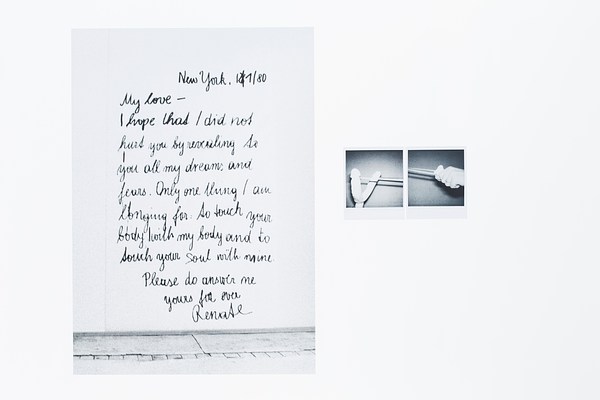 New York, /80
My love –
I hope that I did not
hurt you by revealing to
you all my dreams and
fears. Only one thing I am
longing for: to touch your
body with my body and to
touch your soul with mine
Please do answer me
yours for ever
Renate